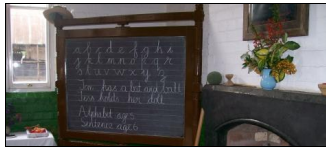 a b c d e f g h i
j k l m n o p q r
s t u v w x y z
Tom has a bat and ball
Tess holds her doll
Alphabet age 5
Sentence age 6